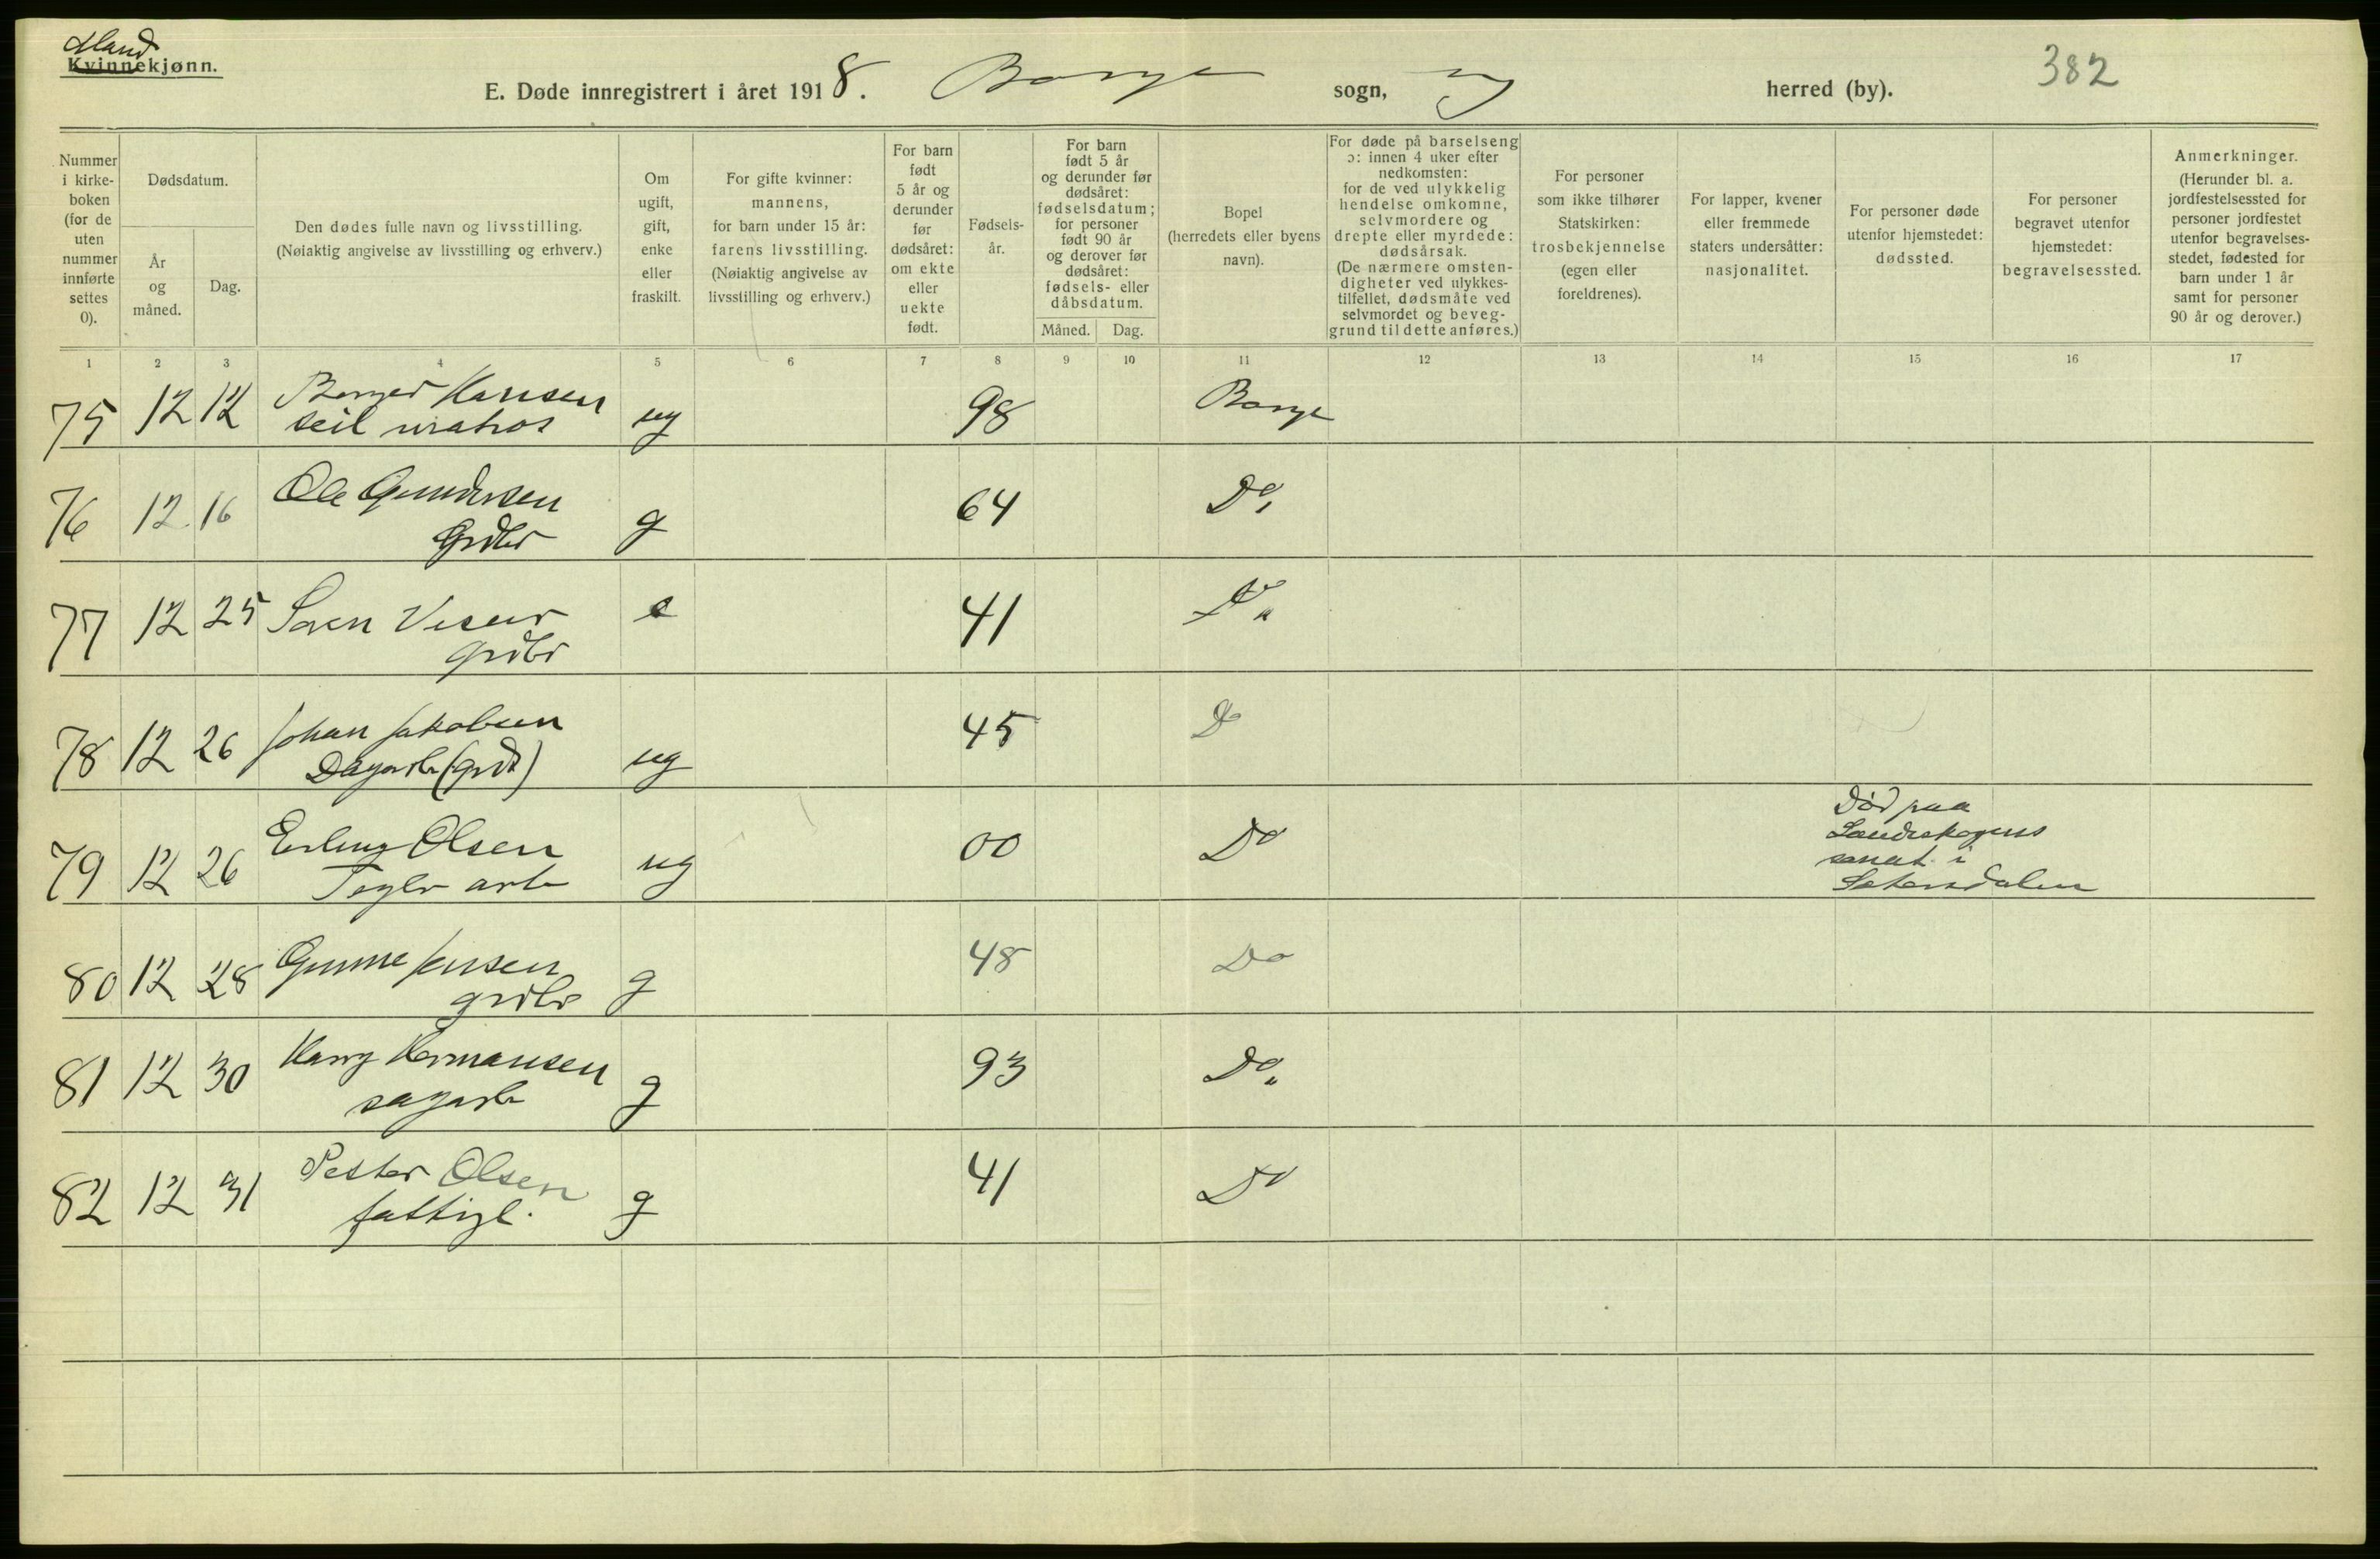 Mand
Kvinnekjønn.
E. Døde innregistrert i året 1918. Borge sogn, herred (by).
382
Nummer i kirke- boken (for de uten nummer innførte settes 0).
Dødsdatum.
År og måned.
Dag.
Den dødes fulle navn og livsstilling.
(Nøiaktig angivelse av livsstilling og erhverv.)
Om ugift, gift, enke eller fraskilt.
For gifte kvinner: mannens, for barn under 15 år: farens livsstilling. (Nøiaktig angivelse av livsstilling og erhverv.)
For barn født 5 år og derunder før dødsåret: om ekte eller uekte født.
Fødsels- år.
For barn født 5 år og derunder før dødsåret: fødselsdatum; for personer født 90 år og derover før dødsåret: fødsels- eller dåbsdatum.
Måned. Dag.
Bopel (herredets eller byens navn).
For døde på barselseng ɔ: innen 4 uker efter nedkomsten: for de ved ulykkelig hendelse omkomne, selvmordere og drepte eller myrdede: dødsårsak. (De nærmere omsten- digheter ved ulykkes- tilfellet, dødsmåte ved selvmordet og beveg- grund til dette anføres.)
For personer som ikke tilhører Statskirken: trosbekjennelse (egen eller foreldrenes).
For lapper, kvener eller fremmede staters undersåtter: nasjonalitet.
For personer døde utenfor hjemstedet: dødssted.
For personer begravet utenfor hjemstedet: begravelsessted.
Anmerkninger. (Herunder bl. a. jordfestelsessted for personer jordfestet utenfor begravelses- stedet, fødested for barn under 1 år samt for personer 90 år og derover.)
1 2 3 4 5 6 7 8 9 10 11 12 13 14 15 16 17
75 12 12 Hansen
seil matros ug 98 Borge
76 12 16 Ole Gundersen
Grdbr g 64 Do
77 12 25 Søren
grdbr e 41 Do
78 12 26 Johan Jakobsen
Dagarb (grdb) ug 45 Do
79 12 26 Erling Olsen
Teglv arb ug 00 Do
Død paa
Landeskogens
sanat. i
Setersdalen
80 12 28 Gunne Jensen
grdbr g 48 Do
81 12 30 Harry Hermansen
sagarb g 93 Do
82 12 31 Petter Olsen
fattigl. g 41 Do